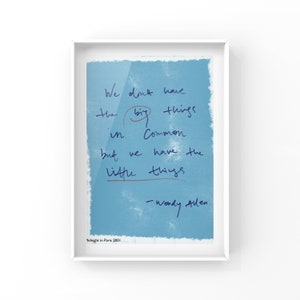 We don't have
the big things
in Common
but we have the
little things
- Woody Allen
Midnight in Paris (2011)